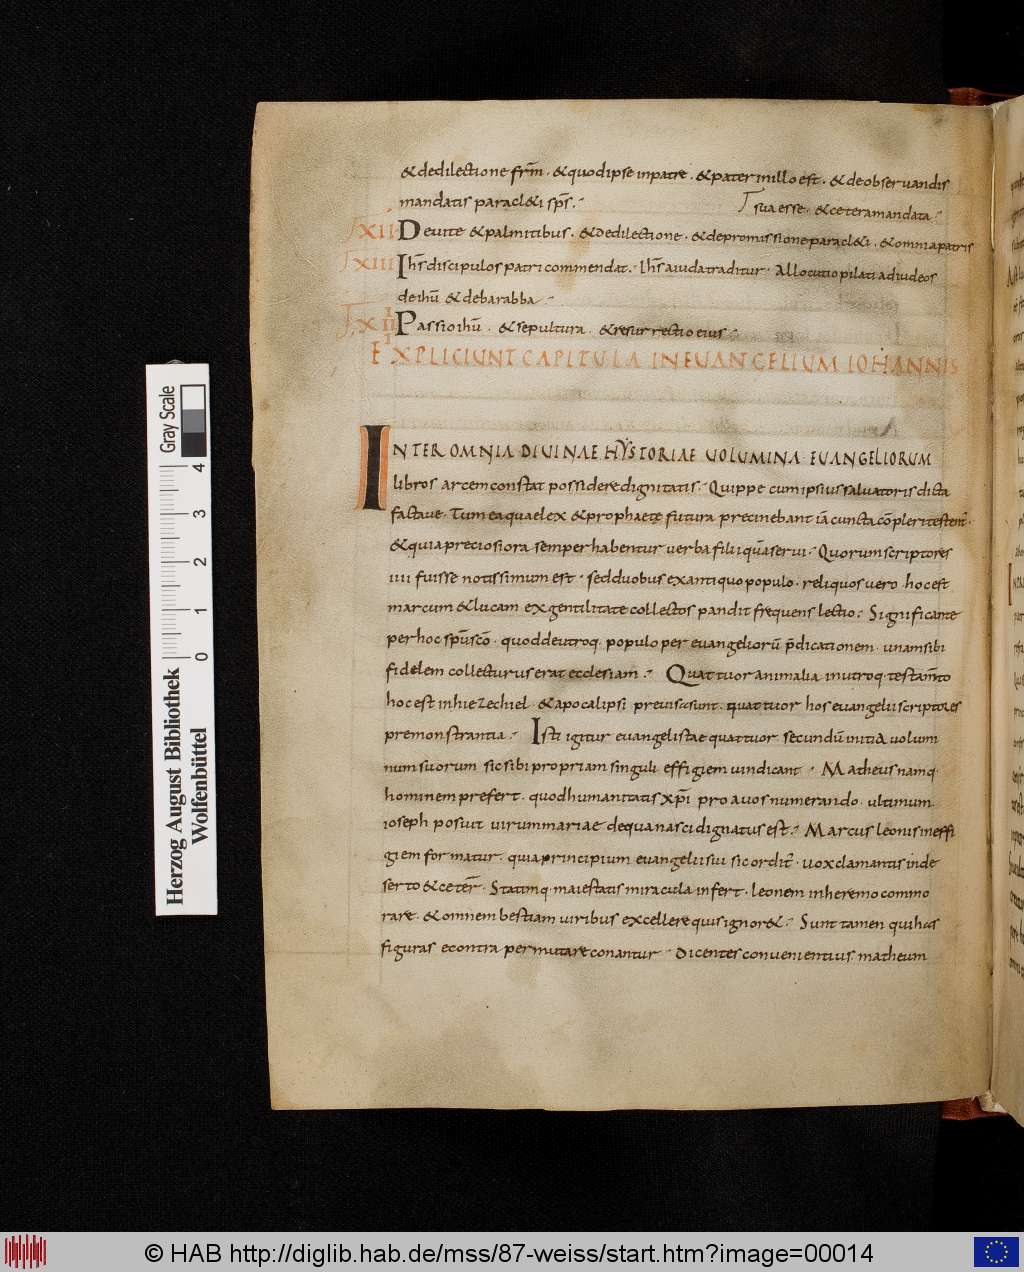 & dedilectione frm̄ . & quod ipse inpatre . & pater inillo est . & de obseruandis
mandatis paracl&i sp̄s .
sua esse . & cetera mandata .
XII De uite & palmitibus . & dedilectione . & depromissione paracl&i . & omnia patris
XIII Ih̄s discipulos patri commendat . Ih̄s aiuda traditur . Allocutio pilati ad iudeos
de ihū & debarabba .
XIIII Passio ihū . & sepultura . & resurrectio eius .
EXPLICIUNT CAPITULA IN EUANGELIUM IOHANNIS
INTER OMNIA DIUINAE HYSTORIAE UOLUMINA EUANGELIORUM
libros arcem constat possidere dignitatis . Quippe cum ipsius saluatoris dicta
factaue . Tum ea quae lex & prophaetę futura precinebant iā cuncta cōpleri testent̄ .
& quia preciosiora semper habentur uerba filii quā serui . Quorum scriptores
iiii fuisse notissimum est . sed duobus ex antiquo populo . reliquos uero hoc est
marcum & lucam ex gentilitate collectos pandit frequens lectio . Significante
per hoc spū sc̄o . quod deutroq. populo per euangeliorū p̄dicationem . unam sibi
fidelem collecturus erat ecclesiam . Quattuor animalia inutroq. testam̄to
hoc est inhiezechiel . & apocalipsi preuisa sunt . quattuor hos euangelii scriptores
premonstrantia . Isti igitur euangelistae quattuor secundū initia uolumi
num suorum sic sibi propriam singuli effigiem uindicant . Matheus namq.
hominem prefert . quod humanitatis xp̄i proauos numerando . ultimum
ioseph posuit uirum mariae de qua nasci dignatus est . Marcus leonis ineffi
giem formatur . quia principium euangelii sui sic ordit̄ . uox clamantis inde
serto & ceter̄ . Statimq. maiestatis miracula infert . leonem inheremo commo
rare . & omnem bestiam uiribus excellere quis ignor& . Sunt tamen qui has
figuras econtra permutare conantur . Dicentes conuenientius matheum
Gray Scale
4
3
2
1
0
Herzog August Bibliothek
Wolfenbüttel
© HAB http://diglib.hab.de/mss/87-weiss/start.htm?image=00014